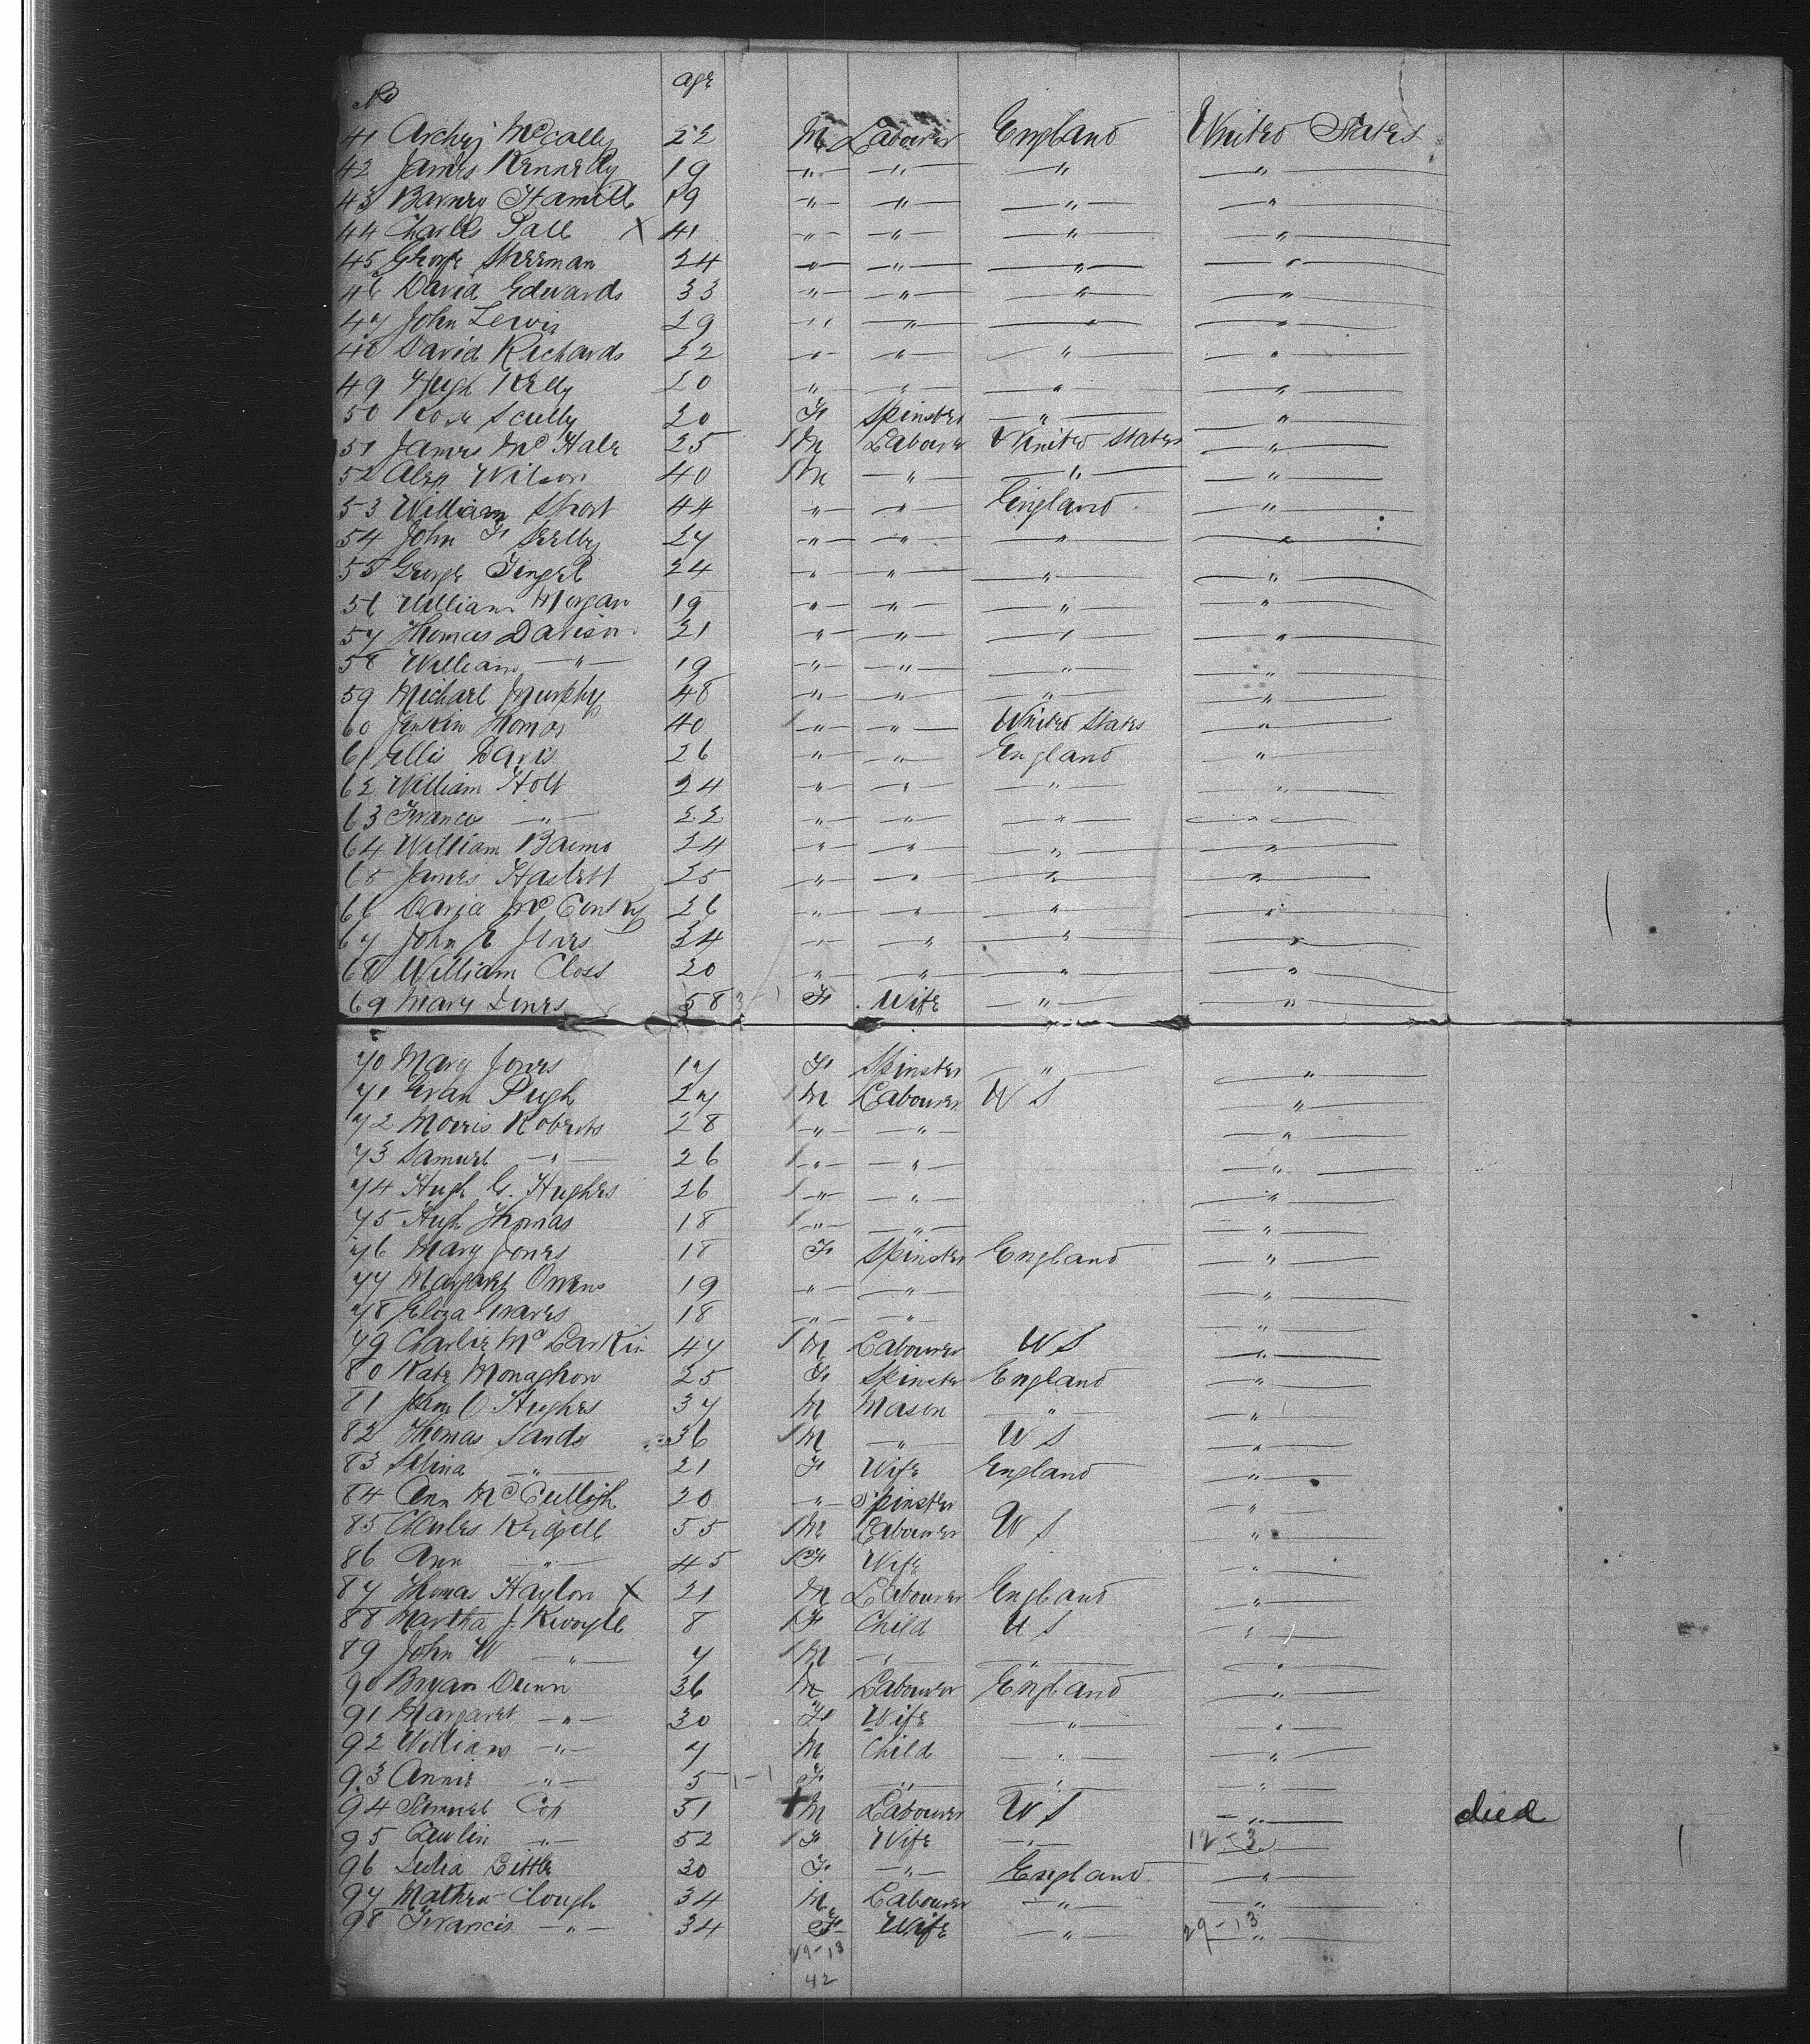 No age
41 Archey McCally 22 M Labourer England United States
42 James Kennedy 19 " " " "
43 Barney Hamill 19 " " " "
44 Charles Tall X 41 " " " "
45 George Sherman 24 " " " "
46 David Edwards 33 " " " "
47 John Lewis 29 " " " "
48 David Richards 22 " " " "
49 Hugh Kelly 20 " " " "
50 Rose Scully 20 F Spinster " "
51 James McHale 25 1 M Labourer United States "
52 Alex Wilson 40 1 M " " "
53 William Short 44 " " England "
54 John F 27 " " " "
55 George 24 " " " "
56 William Morgan 19 " " " "
57 Thomas Davison 21 " " " "
58 William " 19 " " " "
59 Michael Murphy 48 " " " "
60 Jenkin Thomas 40 1 " " United States "
61 Ellis Davis 26 " " England "
62 William Holt 24 " " " "
63 Francis " 22 " " " "
64 William 24 " " " "
65 James Haslett 25 " " " "
66 David 26 " " " "
67 John 24 " " " "
68 William Closs 20 " " " "
69 Mary 58 3-1 F Wife " "
70 Mary Jones 17 F Spinster " "
71 Evan Pugh 27 1 M Labourer U S "
72 Morris Roberts 28 1 " " "
73 Samuel " 26 1 " " "
74 Hugh G. Hughes 26 1 " " "
75 Hugh Thomas 18 1 " " "
76 Mary Jones 18 F Spinster England "
77 Margaret Owens 19 " " "
78 Eliza 18 " " "
79 Charlie McLarkin 47 1 M Labourer U S "
80 Kate Monaghon 25 F Spinster England "
81 John O Hughes 37 M Mason " "
82 Thomas Sands 36 1 M " U S "
83 Selina " 21 F Wife England "
84 Ann 20 " Spinster "
85 Charles 55 1 M Labourer U S "
86 Ann " 45 1 F Wife "
87 Thomas Haylon X 21 M Labourer England "
88 Martha J. 8 1 F Child U S "
89 John W " 7 1 M " " "
90 Bryan Dunn 36 M Labourer England "
91 Margaret " 30 F Wife " "
92 William " 7 M Child " "
93 Annie " 5 1-1 F " " "
94 Samuel Cox 51 + M Labourer U S " died
95 " 52 1 F Wife " 12-3
96 Lidia Little 30 F " England "
97 Mathew Clough 34 M Labourer " "
98 Francis " 34 F Wife " 29-13 "
29-13
42